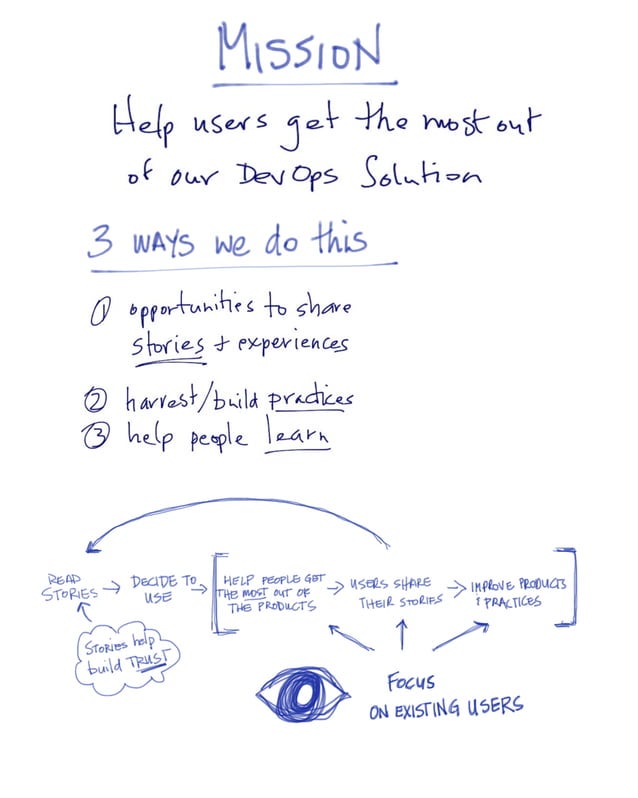 MISSION
Help users get the most out
of our DevOps Solution
3 WAYS we do this
① opportunities to share
stories + experiences
② harvest/build practices
③ help people learn
READ
STORIES → DECIDE TO
USE → HELP PEOPLE GET
THE MOST OUT OF
THE PRODUCTS → USERS SHARE
THEIR STORIES → IMPROVE PRODUCTS
& PRACTICES
Stories help
build TRUST
FOCUS
ON EXISTING USERS